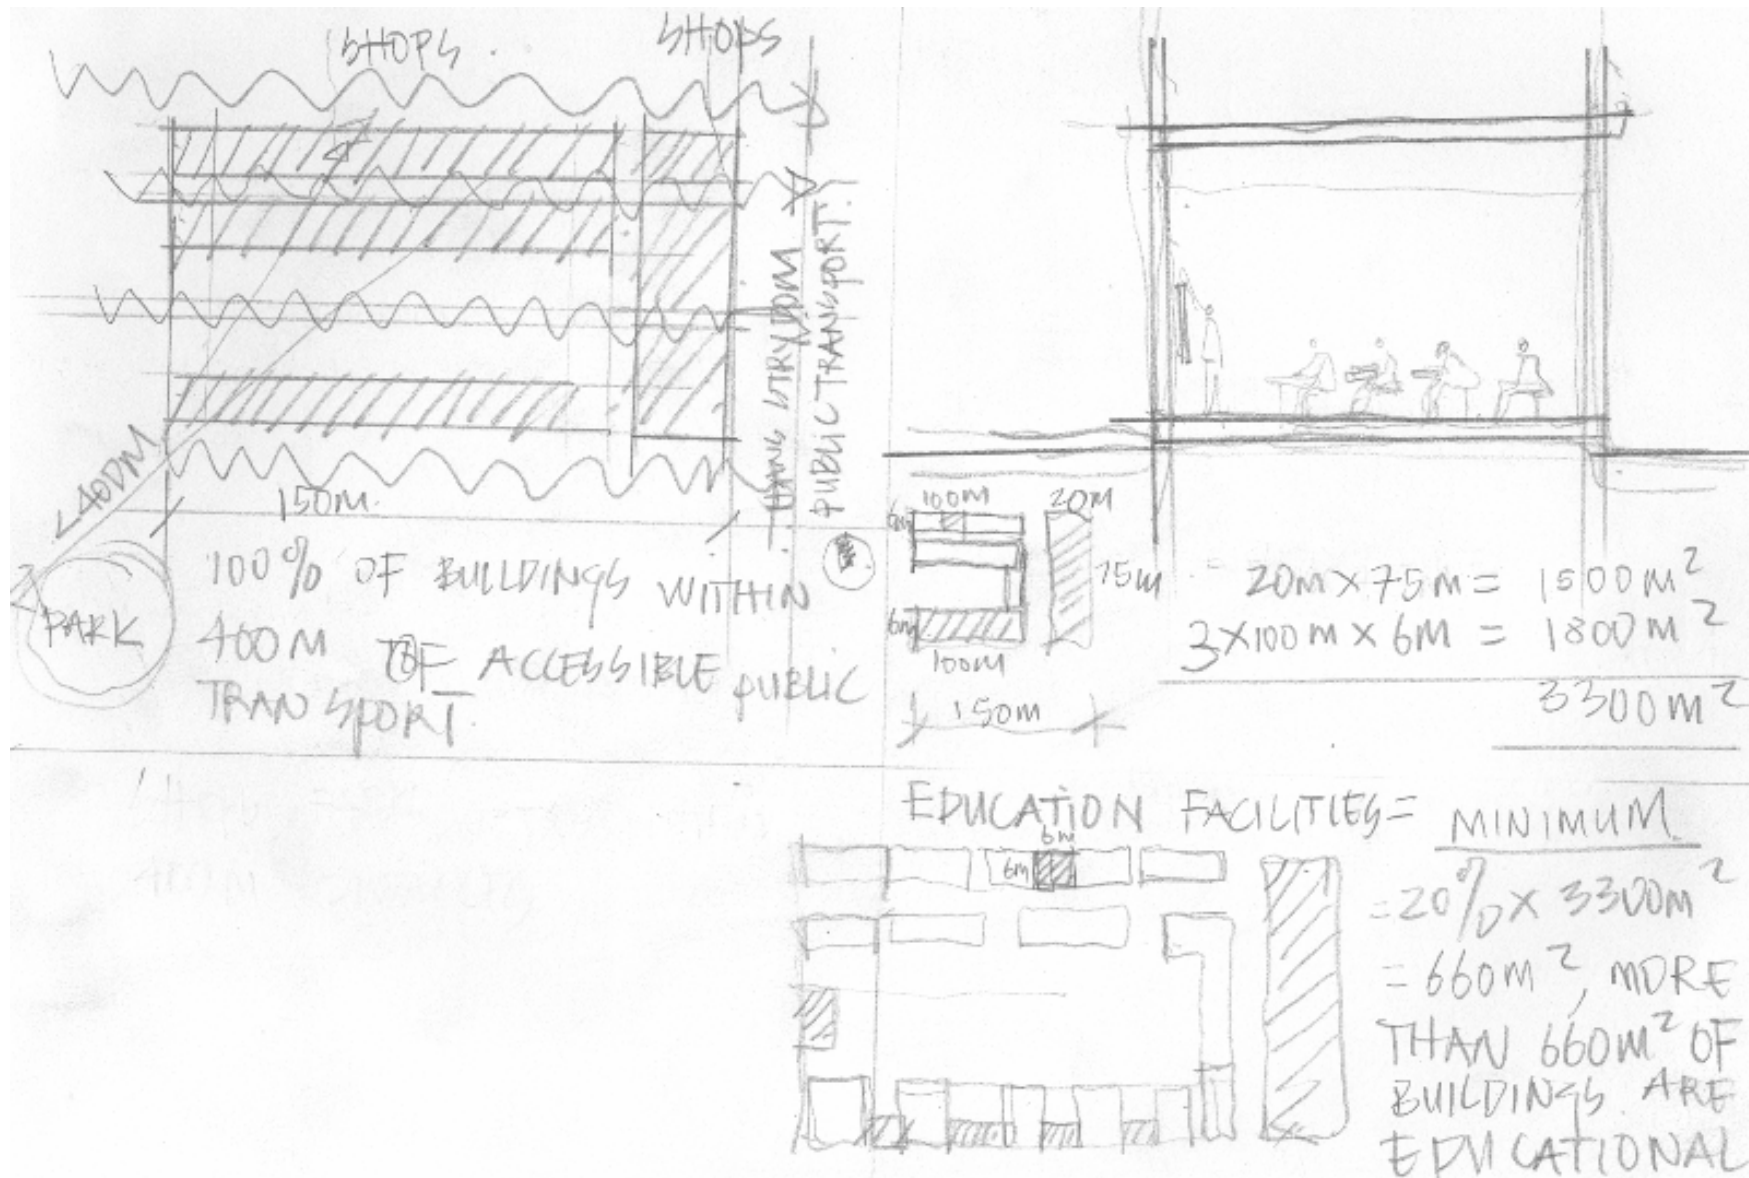 SHOPS.
SHOPS
HANS STRYDOM
PUBLIC TRANSPORT.
<400M
150M.
PARK
100% OF BUILDINGS WITHIN
400M OF ACCESSIBLE PUBLIC
TRANSPORT.
100M
20M
6M
75M
6M
100M
150M
20M X 75M = 1500M²
3 X 100M X 6M = 1800M²
3300M²
EDUCATION FACILITIES = MINIMUM.
6M
6M
= 20% X 3300M²
= 660M², MORE
THAN 660M² OF
BUILDINGS ARE
EDUCATIONAL